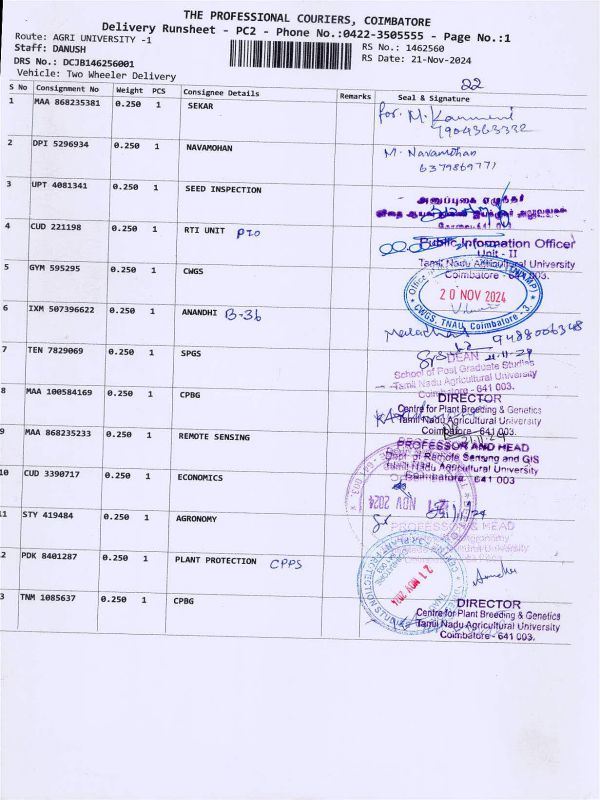 THE PROFESSIONAL COURIERS, COIMBATORE
Delivery Runsheet - PC2 - Phone No.:0422-3505555 - Page No.:1
Route: AGRI UNIVERSITY -1
RS No.: 1462560
Staff: DANUSH
RS Date: 21-Nov-2024
DRS No.: DCJB146256001
Vehicle: Two Wheeler Delivery
22
S No Consignment No Weight PCS Consignee Details Remarks Seal & Signature
1 MAA 868235381 0.250 1 SEKAR for. M.
7904363332
2 DPI 5296934 0.250 1 NAVAMOHAN M. Navamohan
6379869771
3 UPT 4081341 0.250 1 SEED INSPECTION
4 CUD 221198 0.250 1 RTI UNIT PIO
Public Information Officer
Unit - II
Tamil Nadu Agricultural University
Coimbatore - 641 003.
5 GYM 595295 0.250 1 CWGS
20 NOV 2024
CWGS, TNAU, Coimbatore - 3.
6 IXM 507396622 0.250 1 ANANDHI B-36
9488006348
7 TEN 7829069 0.250 1 SPGS
DEAN
School of Post Graduate Studies
Tamil Nadu Agricultural University
Coimbatore - 641 003.
8 MAA 100584169 0.250 1 CPBG
DIRECTOR
Centre for Plant Breeding & Genetics
Tamil Nadu Agricultural University
Coimbatore - 641 003.
9 MAA 868235233 0.250 1 REMOTE SENSING
PROFESSOR AND HEAD
Dept. of Remote Sensing and GIS
Tamil Nadu Agricultural University
Coimbatore - 641 003
10 CUD 3390717 0.250 1 ECONOMICS
21 NOV 2024
11 STY 419484 0.250 1 AGRONOMY
PROFESSOR & HEAD
2 PDK 8401287 0.250 1 PLANT PROTECTION CPPS
21 NOV 2024
3 TNM 1085637 0.250 1 CPBG
DIRECTOR
Centre for Plant Breeding & Genetics
Tamil Nadu Agricultural University
Coimbatore - 641 003.